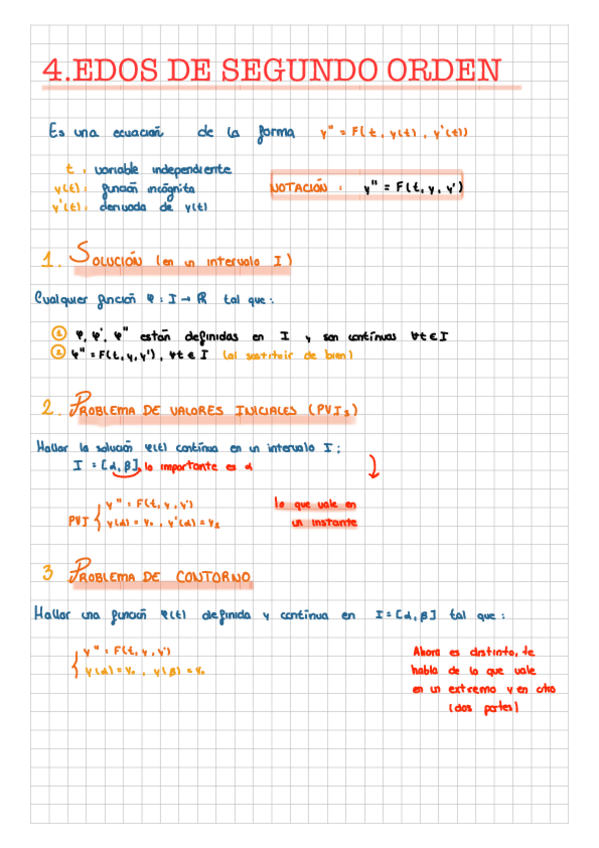 4.EDOS DE SEGUNDO ORDEN
Es una ecuación de la forma y" = F(t, y(t), y'(t))
t : variable independiente
y(t): función incógnita
NOTACIÓN : y" = F(t, y, y')
y'(t): derivada de y(t)
1. SOLUCIÓN (en un intervalo I)
Cualquier función φ : I → ℝ tal que:
① φ, φ', φ" están definidas en I y son contínuas ∀t ∈ I
② φ" = F(t, y, y'), ∀t ∈ I (al sustituir de bien)
2. PROBLEMA DE VALORES INICIALES (PVIs)
Hallar la solución φ(t) contínua en un intervalo I:
I = [α, β], lo importante es α
PVI { y" = F(t, y, y')
y(α) = y₀, y'(α) = y₁
lo que vale en
un instante
3 PROBLEMA DE CONTORNO
Hallar una función φ(t) definida y contínua en I = [α, β] tal que :
{ y" = F(t, y, y')
y(α) = y₀, y(β) = y₀
Ahora es distinto, te
habla de lo que vale
en un extremo y en otro
(dos partes)